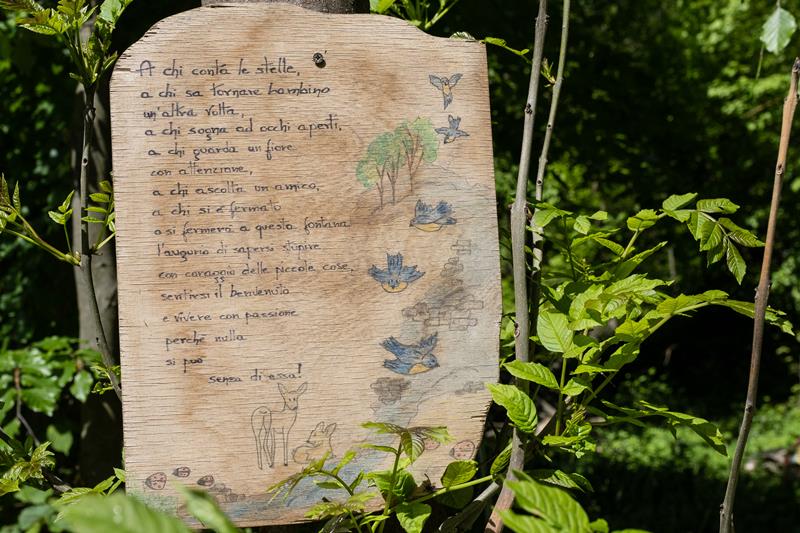 A chi conta le stelle,
a chi sa tornare bambino
un'altra volta,
a chi sogna ad occhi aperti,
a chi guarda un fiore
con attenzione,
a chi ascolta un amico,
a chi si è fermato
o si fermerà a questa fontana
l'augurio di sapersi stupire
con coraggio delle piccole cose,
sentirssi il benvenuto
e vivere con passione
perchè nulla
si può
senza di essa!